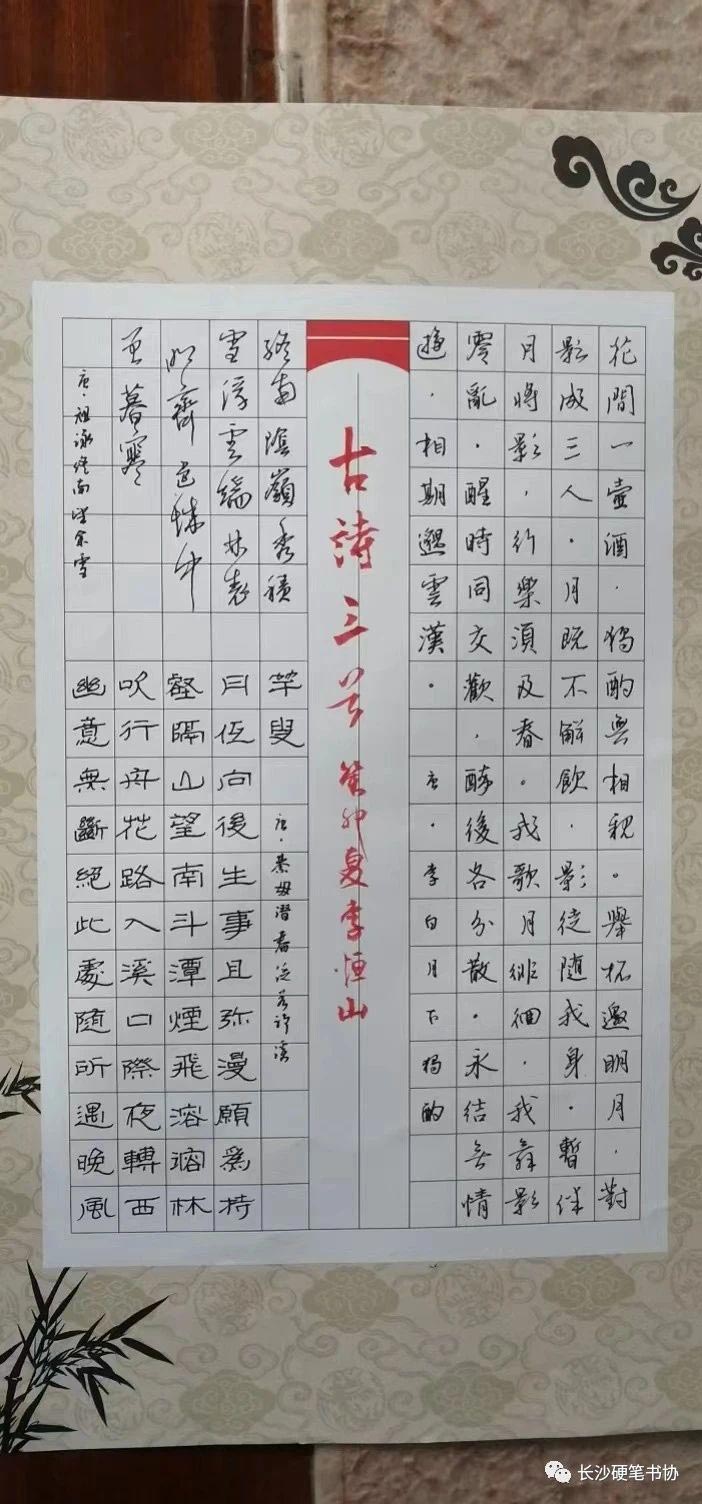 花間一壺酒·獨酌無相親。舉杯邀明月·對
影成三人·月既不解飲·影徒隨我身·暫伴
月將影,行樂須及春。我歌月徘徊·我舞影
零亂·醒時同交歡,醉後各分散·永結無情
遊·相期邈雲漢·唐·李白月下獨酌
古詩三首 癸卯夏李恒山
終南陰嶺秀積
雪浮雲端林表
明霽色城中
增暮寒
唐·祖詠終南望余雪
幽意無斷絕此處隨所遇晚風
吹行舟花路入溪口際夜轉西
壑隔山望南斗潭煙飛溶溶林
月低向後生事且弥漫願為持
竿叟 唐·綦毋潛春泛若耶溪
长沙硬笔书协